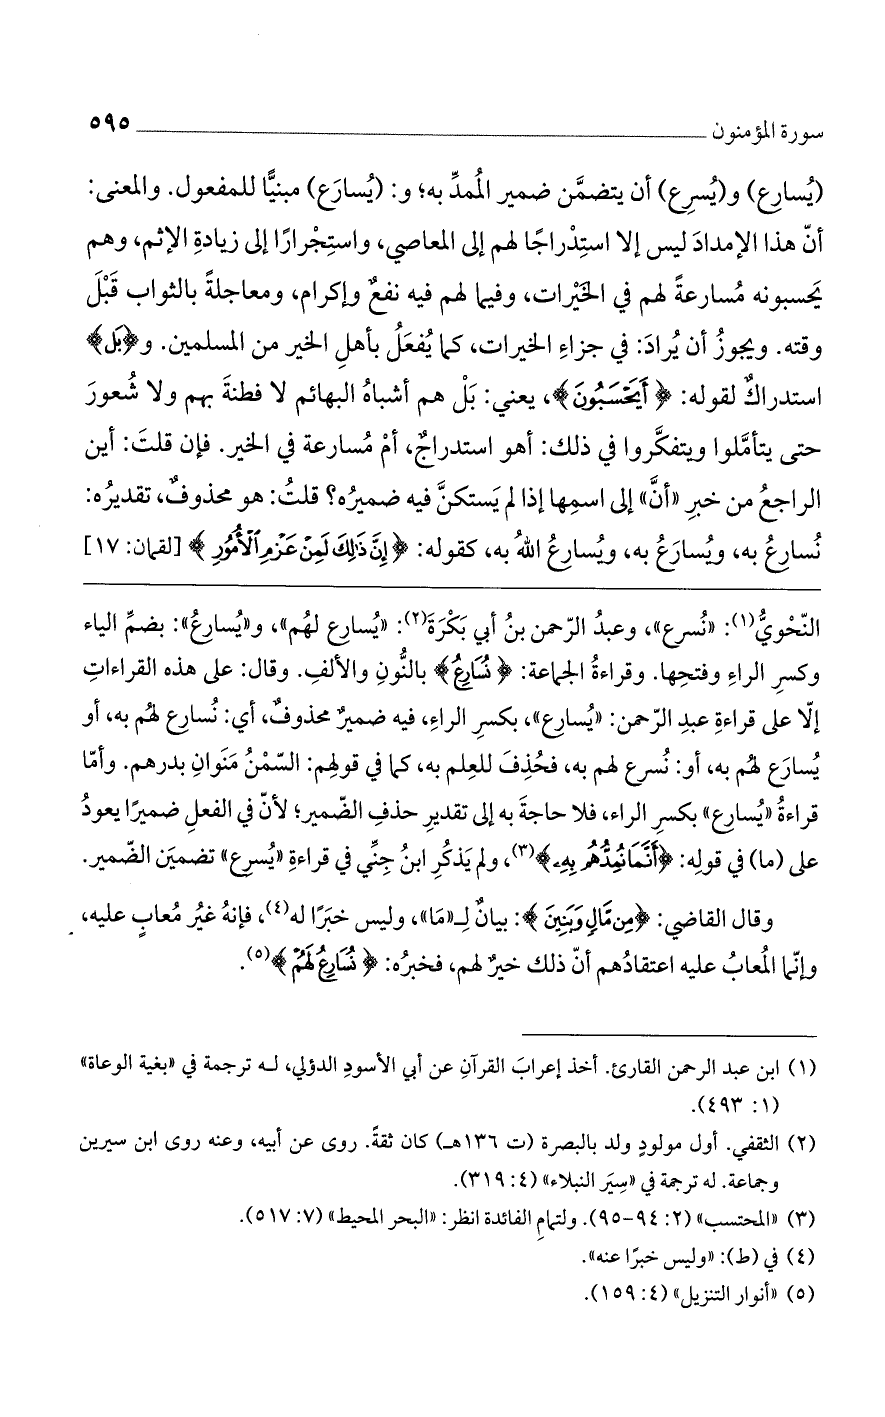 سورة المؤمنون ٥٩٥
(يُسارع) و(يُسرِع) أن يتضمَّن ضمير المُمدِّ به؛ و: (يُسارَع) مبنيًّا للمفعول. والمعنى:
أنّ هذا الإمدادَ ليس إلا استِدْراجًا لهم إلى المعاصي، واستِجْرارًا إلى زيادةِ الإثم، وهم
يَحسبونه مُسارعةً لهم في الخَيْرات، وفيما لهم فيه نفعٌ وإكرام، ومعاجلةً بالثواب قَبْلَ
وقته. ويجوزُ أن يُرادَ: في جزاءِ الخيرات، كما يُفعَلُ بأهلِ الخير من المسلمين. و﴿بَل﴾
استدراكٌ لقوله: ﴿أَيَحْسَبُونَ﴾، يعني: بَلْ هم أشباهُ البهائم لا فطنةَ بهم ولا شُعورَ
حتى يتأمَّلوا ويتفكَّروا في ذلك: أهو استدراجٌ، أمْ مُسارعة في الخير. فإن قلتَ: أين
الراجعُ من خبرِ «أنَّ» إلى اسمِها إذا لم يَستكنَّ فيه ضميرُه؟ قلتُ: هو محذوفٌ، تقديرُه:
نُسارعُ به، ويُسارَعُ به، ويُسارعُ اللهُ به، كقوله: ﴿إِنَّ ذَٰلِكَ لَمِنْ عَزْمِ ٱلْأُمُورِ﴾ [لقمان: ١٧]
النّحْويُّ(١): «نُسرع»، وعبدُ الرّحمن بنُ أبي بَكْرَةَ(٢): «يُسارع لهُم»، و«يُسارعُ»: بضمِّ الياء
وكسرِ الراءِ وفتحِها. وقراءةُ الجماعة: ﴿نُسَارِعُ﴾ بالنُّونِ والألفِ. وقال: على هذه القراءاتِ
إلّا على قراءةِ عبدِ الرّحمن: «يُسارع»، بكسرِ الراءِ، فيه ضميرٌ محذوفٌ، أي: نُسارع لهُم به، أو
يُسارَع لهُم به، أو: نُسرع لهم به، فحُذِفَ للعِلم به، كما في قولهِم: السّمْنُ مَنَوانِ بدرهم. وأمّا
قراءةُ «يُسارع» بكسرِ الراء، فلا حاجةَ به إلى تقديرِ حذفِ الضّمير؛ لأنّ في الفعلِ ضميرًا يعودُ
على (ما) في قولِه: ﴿أَنَّمَا نُمِدُّهُم بِهِۦ﴾(٣)، ولم يَذكُرِ ابنُ جِنِّي في قراءةِ «يُسرع» تضمينَ الضّمير.
وقال القاضي: ﴿مِن مَّالٍ وَبَنِينَ﴾: بيانٌ لِـ«مَا»، وليس خبَرًا له(٤)، فإنهُ غيرُ مُعابٍ عليه،
وإنّما المُعابُ عليه اعتقادُهم أنّ ذلك خيرٌ لهم، فخبرُه: ﴿نُسَارِعُ لَهُمْ﴾(٥).
(١) ابن عبد الرحمن القارئ. أخذ إعرابَ القرآنِ عن أبي الأسودِ الدؤلي، لـه ترجمة في «بغية الوعاة»
(١: ٤٩٣).
(٢) الثقفي. أول مولودٍ ولد بالبصرة (ت ١٣٦هـ) كان ثقةً. روى عن أبيه، وعنه روى ابن سيرين
وجماعة. له ترجمة في «سِيَر النبلاء» (٤: ٣١٩).
(٣) «المحتسب» (٢: ٩٤-٩٥). ولتمامِ الفائدة انظر: «البحر المحيط» (٧: ٥١٧).
(٤) في (ط): «وليس خبرًا عنه».
(٥) «أنوار التنزيل» (٤: ١٥٩).